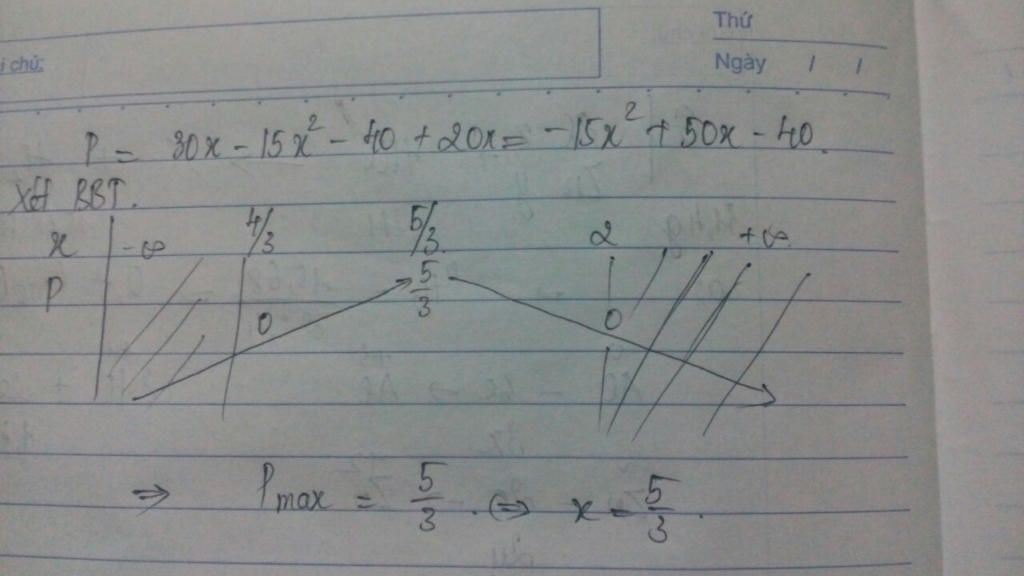 Thứ
i chú:
Ngày / /
P = 30x - 15x² - 40 + 20x = -15x² + 50x - 40.
Xét BBT.
x -∞ 4/3 5/3 2 +∞
P 0 5/3 0
⇒ Pmax = 5/3 . ⇔ x = 5/3 .